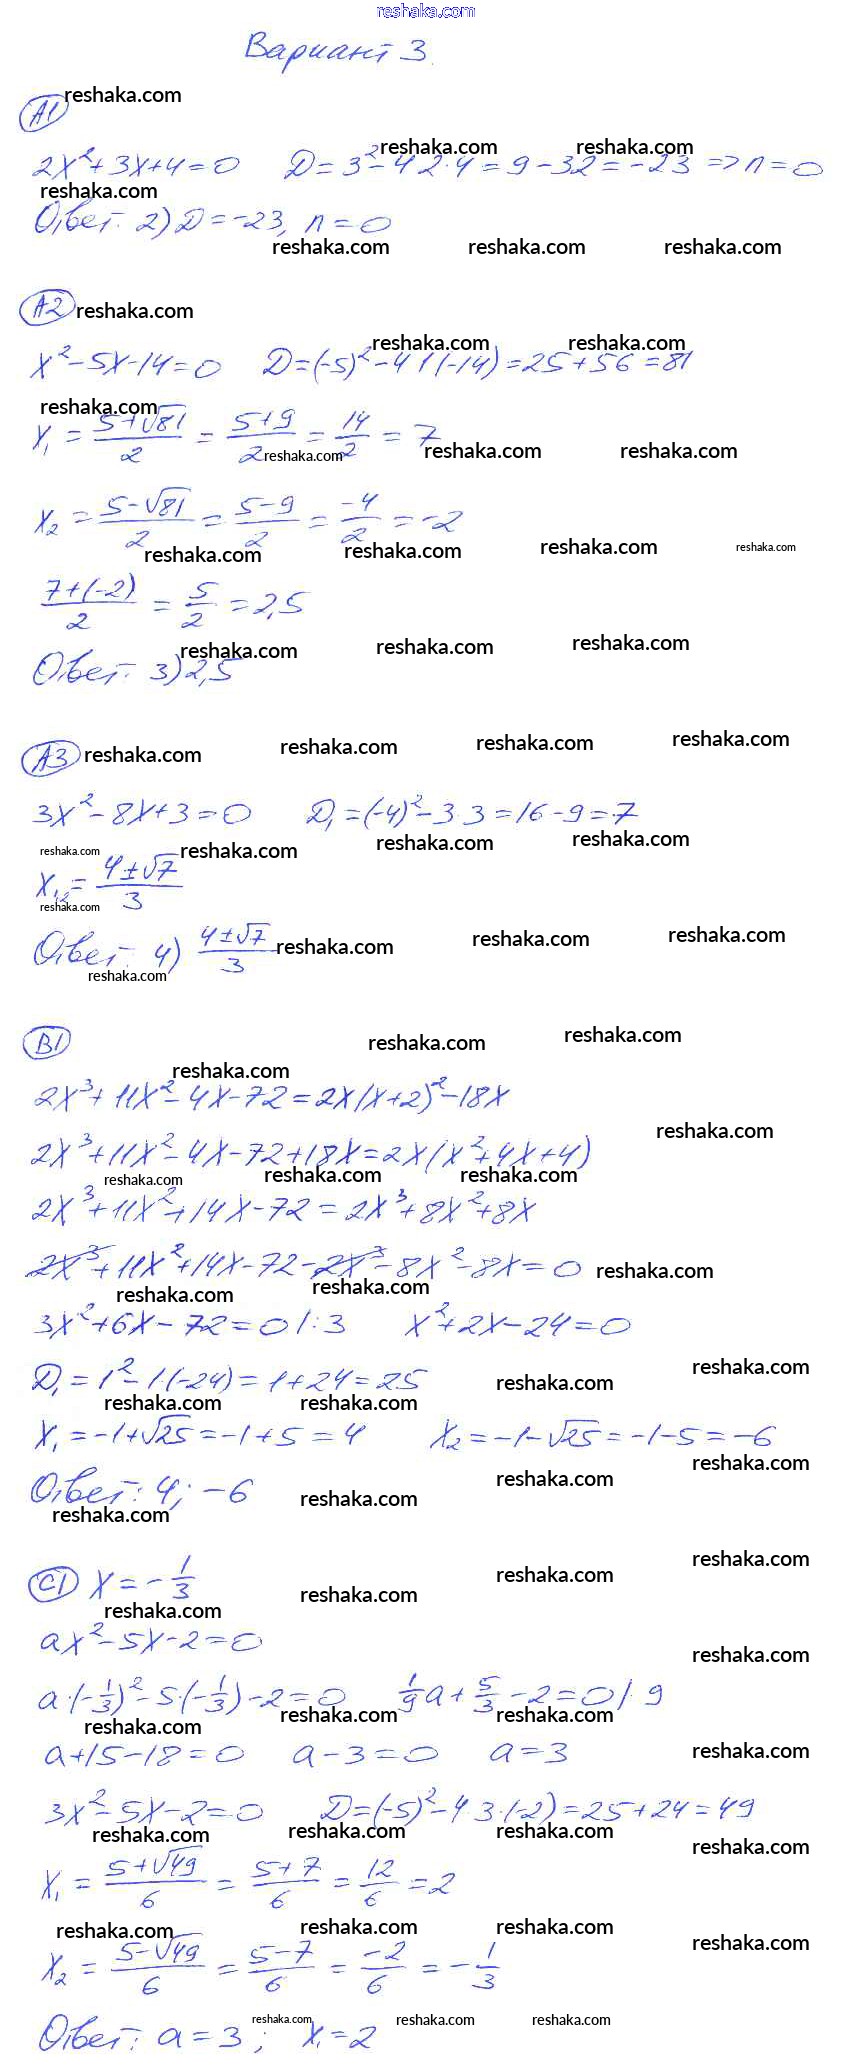 reshaka.com
Вариант 3.
A1 reshaka.com
reshaka.com reshaka.com
2x²+3x+4=0 D=3²-4·2·4=9-32=-23 =>n=0
reshaka.com
Ответ: 2) D=-23, n=0
reshaka.com reshaka.com reshaka.com
A2 reshaka.com
reshaka.com reshaka.com
x²-5x-14=0 D=(-5)²-4·1·(-14)=25+56=81
reshaka.com
x₁ = (5+√81)/2 = (5+9)/2 = 14/2 = 7
reshaka.com reshaka.com reshaka.com
x₂ = (5-√81)/2 = (5-9)/2 = -4/2 = -2
reshaka.com reshaka.com reshaka.com reshaka.com
(7+(-2))/2 = 5/2 = 2,5
reshaka.com reshaka.com reshaka.com
Ответ: 3) 2,5
A3 reshaka.com reshaka.com reshaka.com reshaka.com
3x²-8x+3=0 D₁=(-4)²-3·3=16-9=7
reshaka.com reshaka.com reshaka.com reshaka.com
x₁,₂= (4±√7)/3
reshaka.com
Ответ: 4) (4±√7)/3 reshaka.com reshaka.com reshaka.com
reshaka.com
B1 reshaka.com reshaka.com
reshaka.com
2x³+11x²-4x-72=2x(x+2)²-18x
reshaka.com
2x³+11x²-4x-72+18x=2x(x²+4x+4)
reshaka.com reshaka.com reshaka.com
2x³+11x²+14x-72=2x³+8x²+8x
2x³+11x²+14x-72-2x³-8x²-8x=0 reshaka.com
reshaka.com reshaka.com
3x²+6x-72=0 |:3 x²+2x-24=0
D₁=1²-1·(-24)=1+24=25 reshaka.com reshaka.com
reshaka.com reshaka.com
x₁=-1+√25=-1+5=4 x₂=-1-√25=-1-5=-6
reshaka.com reshaka.com
Ответ: 4; -6 reshaka.com
reshaka.com
C1 x=-1/3 reshaka.com reshaka.com reshaka.com
reshaka.com
ax²-5x-2=0
reshaka.com
a·(-1/3)²-5·(-1/3)-2=0 1/9a+5/3-2=0 |·9
reshaka.com reshaka.com reshaka.com
a+15-18=0 a-3=0 a=3 reshaka.com
3x²-5x-2=0 D=(-5)²-4·3·(-2)=25+24=49
reshaka.com reshaka.com reshaka.com reshaka.com
x₁ = (5+√49)/6 = (5+7)/6 = 12/6 = 2
reshaka.com reshaka.com reshaka.com reshaka.com
x₂ = (5-√49)/6 = (5-7)/6 = -2/6 = -1/3
reshaka.com reshaka.com reshaka.com
Ответ: a=3; x₁=2